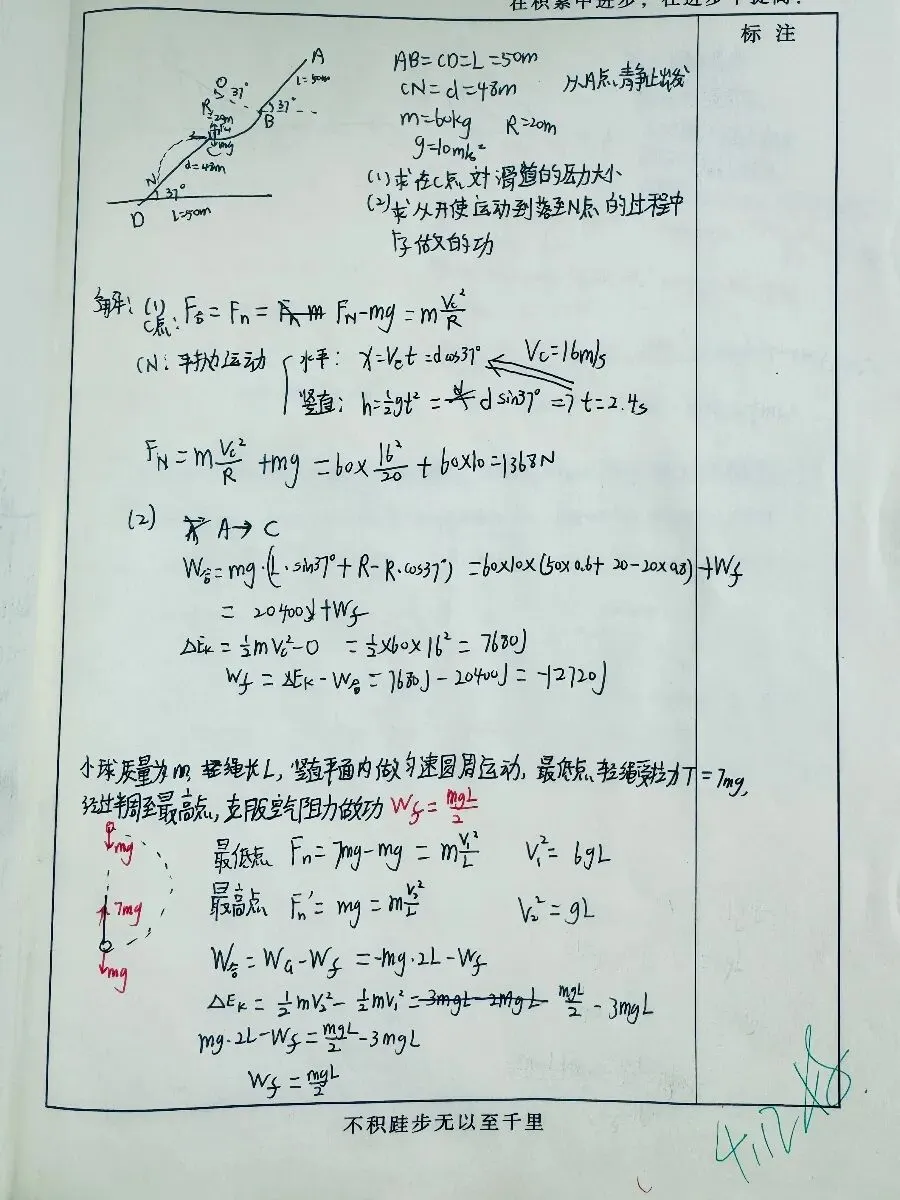 在积累中进步，在进步中提高！
标 注
A
L=50m
O
37°
R=20m
B
37°
C
mg
d=48m
N
37°
D
L=50m
AB=CD=L=50m
CN=d=48m
从A点静止出发
m=60kg R=20m
g=10m/s²
(1)求在C点对滑道的压力大小
(2)求从开使运动到落至N点的过程中
f所做的功
解：(1)
C点：F合=Fn= FN-mg=m Vc²/R
CN：平抛运动
水平：x=Vct=dcos37° Vc=16m/s
竖直：h=½gt²= dsin37° => t=2.4s
FN=m Vc²/R +mg =60× 16²/20 + 60×10=1368N
(2) A→C
W合=mg·(L·sin37°+R-R·cos37°) =60×10×(50×0.6+20-20×0.8)+Wf
= 20400J+Wf
ΔEk=½mVc²-0 =½×60×16²=7680J
Wf=ΔEk-W合=7680J-20400J=-12720J
小球质量为m，轻绳长L，竖直平面内做匀速圆周运动，最低点轻绳受拉力T=7mg，
经过半周至最高点，克服空气阻力做功 Wf=mgL/2
mg
7mg
mg
最低点 Fn=7mg-mg=m V₁²/L V₁²=6gL
最高点 Fn'=mg=m V₂²/L V₂²=gL
W合=WG-Wf=-mg·2L-Wf
ΔEk=½mV₂²-½mV₁²=3mgL-2mgL mgL/2 -3mgL
mg·2L-Wf=mgL/2-3mgL
Wf=mgL/2
不积跬步无以至千里
4.12